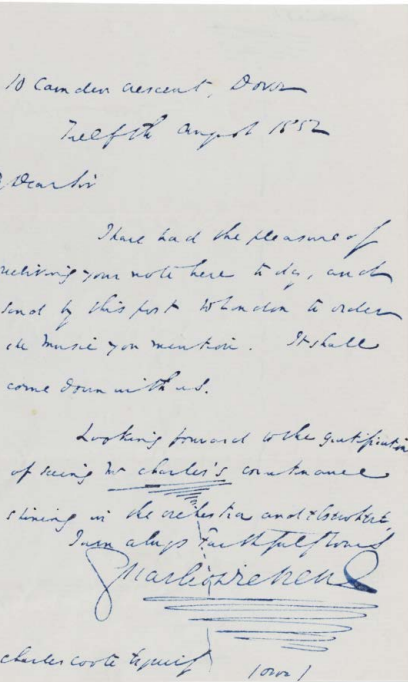 10 Camden Crescent, Dover
Twelfth August 1852
Dear Sir
I have had the pleasure of
receiving your note here to day, and
send by this post to London to order
the music you mention. It shall
come down with us.
Looking forward to the gratification
of seeing Mr Charles's countenance
shining in the orchestra and elsewhere,
I am always faithfully Yours
Charles Dickens
Charles Coote Esquire